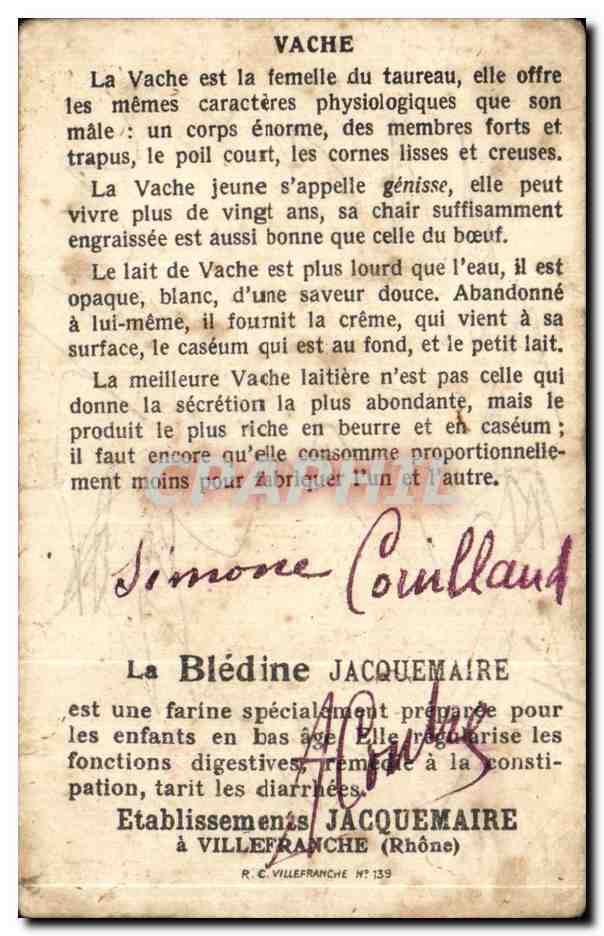 VACHE
La Vache est la femelle du taureau, elle offre
les mêmes caractères physiologiques que son
mâle : un corps énorme, des membres forts et
trapus, le poil court, les cornes lisses et creuses.
La Vache jeune s'appelle génisse, elle peut
vivre plus de vingt ans, sa chair suffisamment
engraissée est aussi bonne que celle du bœuf.
Le lait de Vache est plus lourd que l'eau, il est
opaque, blanc, d'une saveur douce. Abandonné
à lui-même, il fournit la crême, qui vient à sa
surface, le caséum qui est au fond, et le petit lait.
La meilleure Vache laitière n'est pas celle qui
donne la sécrétion la plus abondante, mais le
produit le plus riche en beurre et en caséum ;
il faut encore qu'elle consomme proportionnelle-
ment moins pour fabriquer l'un et l'autre.
CPAPHIL
Simone
La Blédine JACQUEMAIRE
est une farine spécialement préparée pour
les enfants en bas âge. Elle régularise les
fonctions digestives, remédie à la consti-
pation, tarit les diarrhées.
Etablissements JACQUEMAIRE
à VILLEFRANCHE (Rhône)
R. C. VILLEFRANCHE Nº 139